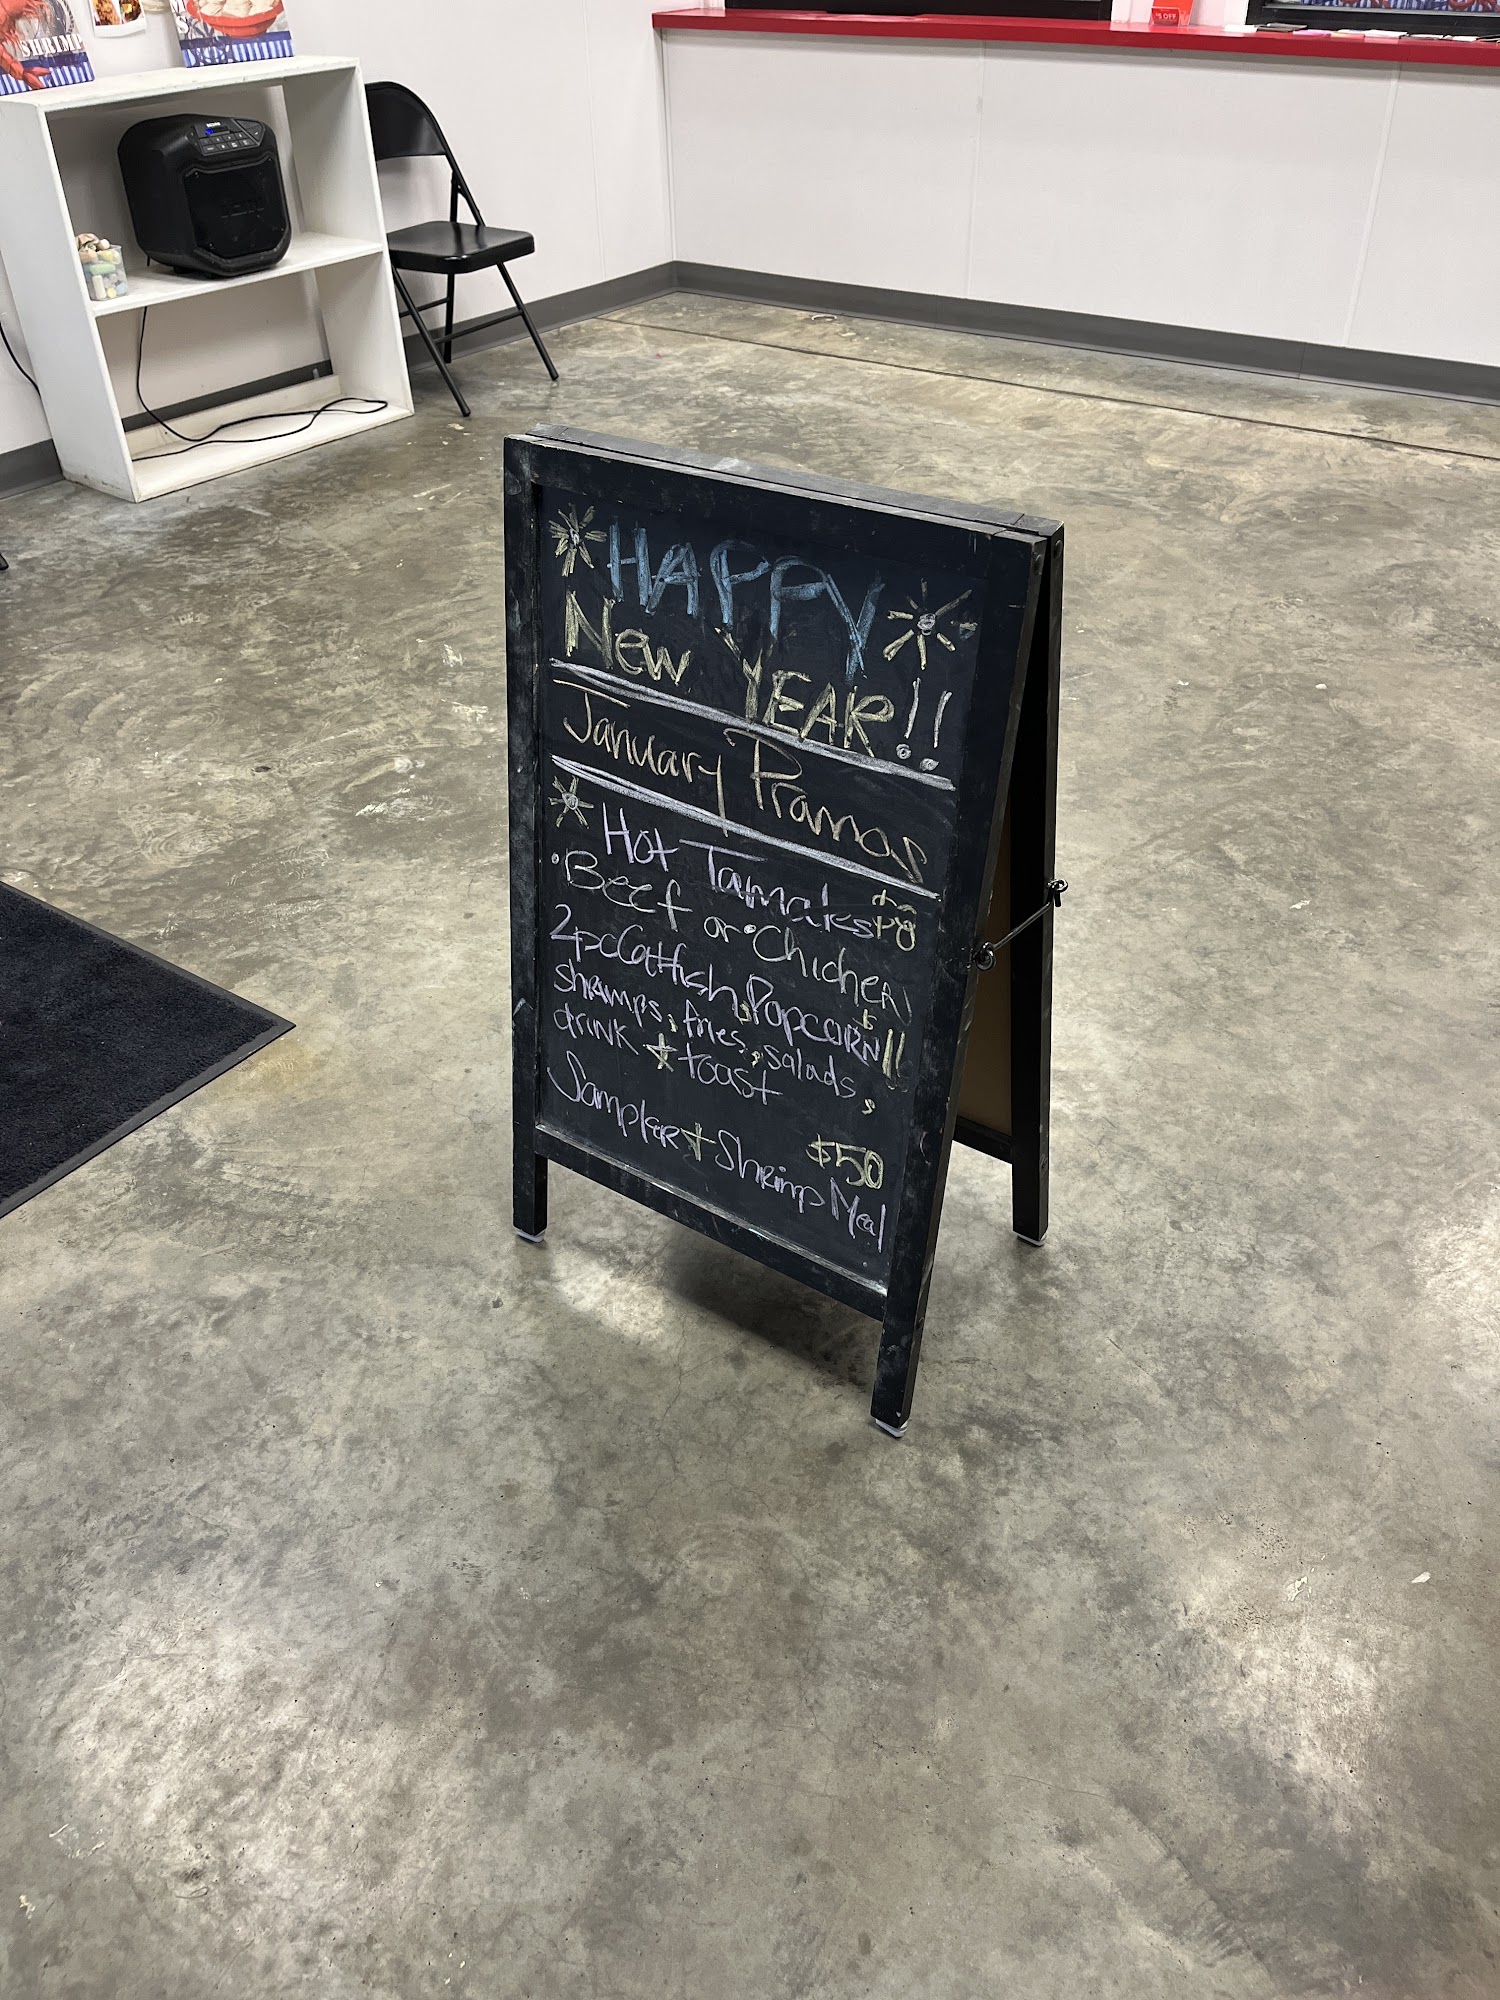 SHRIMP
HAPPY
New YEAR!!
January Pramos
Hot Tamales $8
• Beef or • Chicken
2pc Catfish, Popcorn $11
shrimps, fries, salads,
drink + toast
Sampler + Shrimp Meal $50